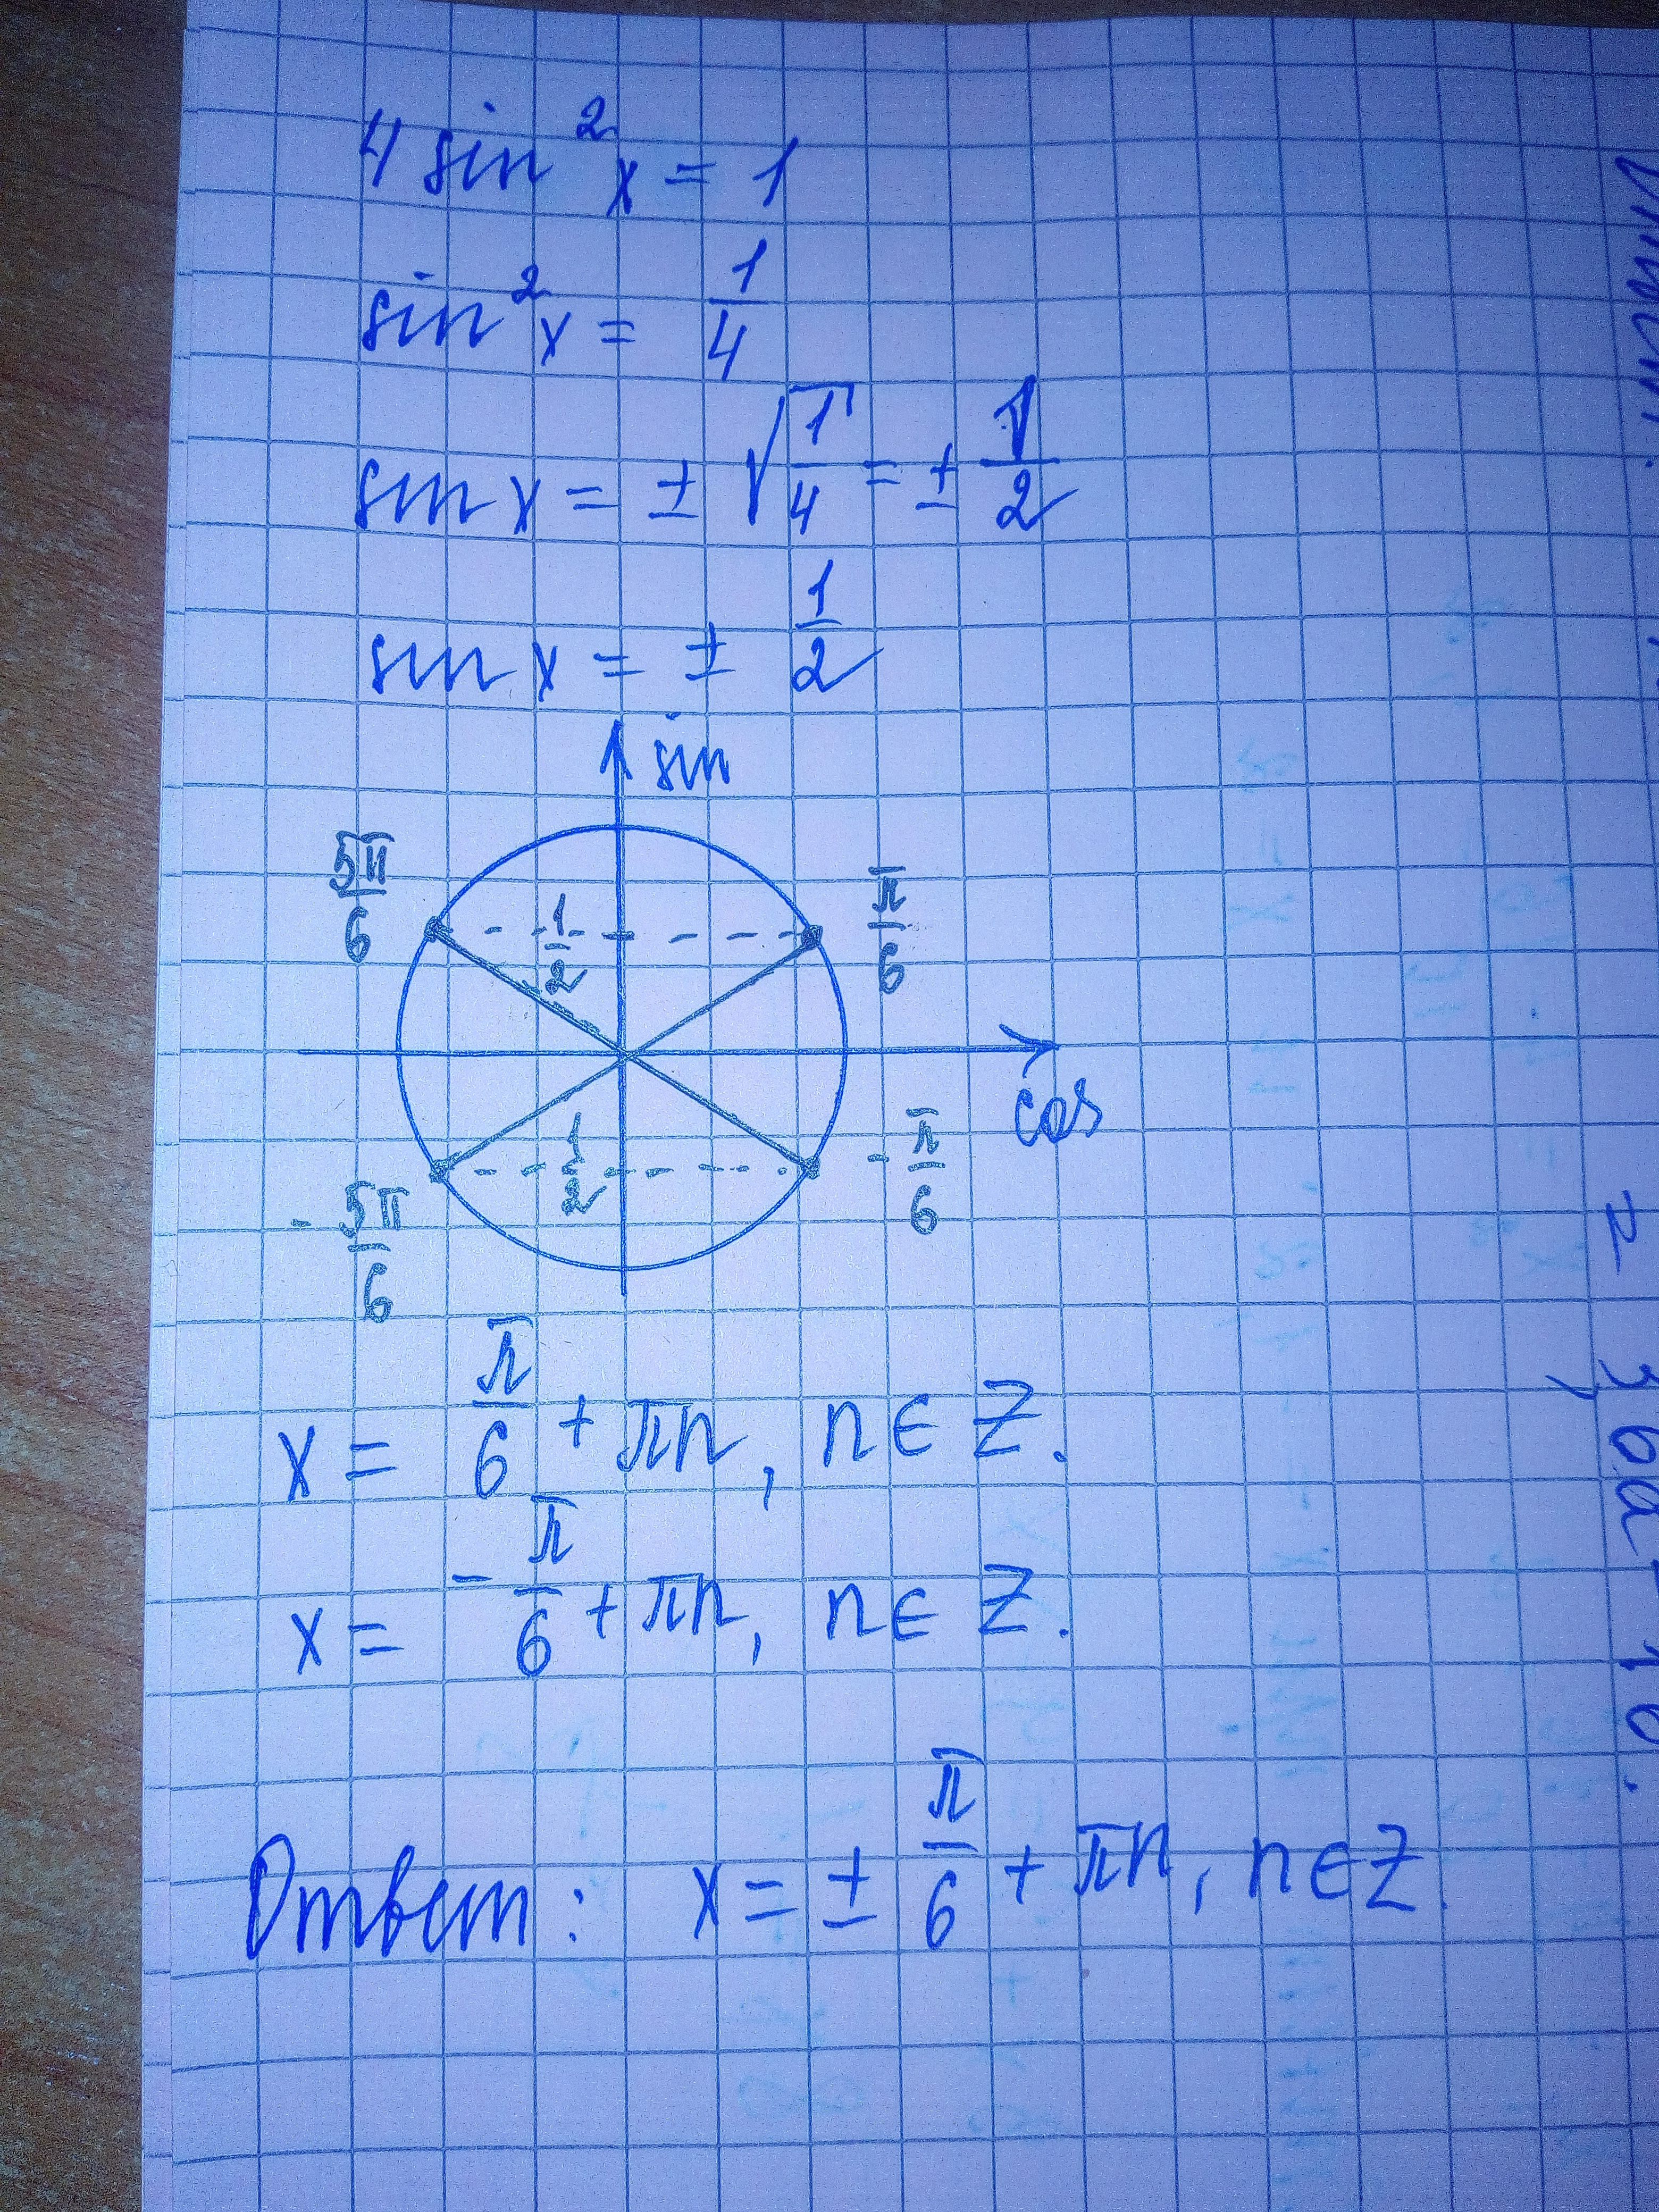 4 sin²x = 1
sin²x = 1/4
sin x = ± √1/4 = ± 1/2
sin x = ± 1/2
sin
5π/6
1/2
π/6
cos
1/2
-π/6
-5π/6
x = π/6 + πn, n ∈ Z.
x = -π/6 + πn, n ∈ Z.
Ответ: x = ± π/6 + πn, n ∈ Z.